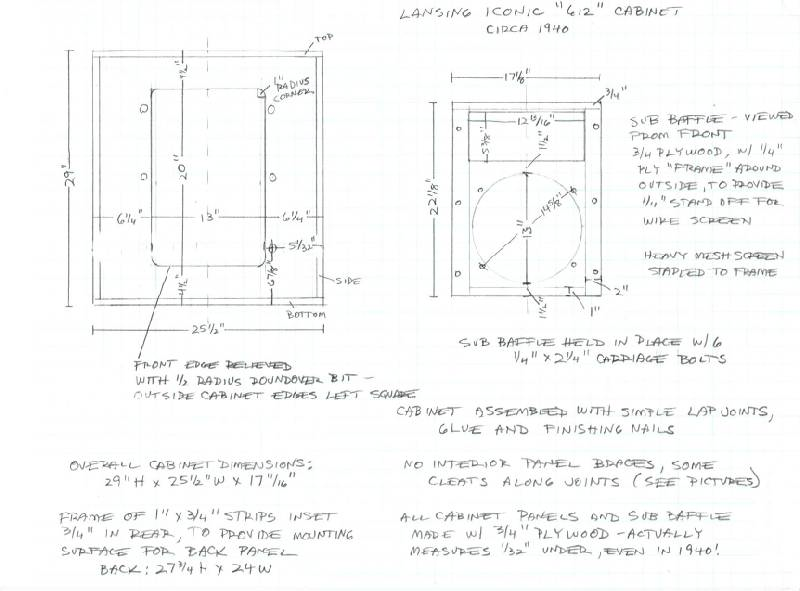 LANSING ICONIC "612" CABINET
CIRCA 1940
TOP
4½"
1" RADIUS
CORNER
29"
20"
6¼"
13"
6¼"
5⅝"
4½"
6⅞"
SIDE
BOTTOM
25½"
FRONT EDGE RELIEVED
WITH ½ RADIUS ROUNDOVER BIT —
OUTSIDE CABINET EDGES LEFT SQUARE
17⅞"
3/4"
12 13/16"
5⅜"
1½"
22⅛"
14⅝"
13"
1½"
2"
1"
SUB BAFFLE - VIEWED
FROM FRONT
3/4 PLYWOOD, W/ ¼"
PLY "FRAME" AROUND
OUTSIDE, TO PROVIDE
STAND OFF FOR
WIRE SCREEN
HEAVY MESH SCREEN
STAPLED TO FRAME
SUB BAFFLE HELD IN PLACE W/6
¼" x 2¼" CARRIAGE BOLTS
CABINET ASSEMBLED WITH SIMPLE LAP JOINTS,
GLUE AND FINISHING NAILS
OVERALL CABINET DIMENSIONS:
29"H x 25½"W x 17 "/16"
NO INTERIOR PANEL BRACES, SOME
CLEATS ALONG JOINTS (SEE PICTURES)
FRAME OF 1" x 3/4" STRIPS INSET
3/4" IN REAR, TO PROVIDE MOUNTING
SURFACE FOR BACK PANEL
BACK: 27¾ H x 24 W
ALL CABINET PANELS AND SUB BAFFLE
MADE W/ 3/4" PLYWOOD - ACTUALLY
MEASURES 1/32" UNDER, EVEN IN 1940!